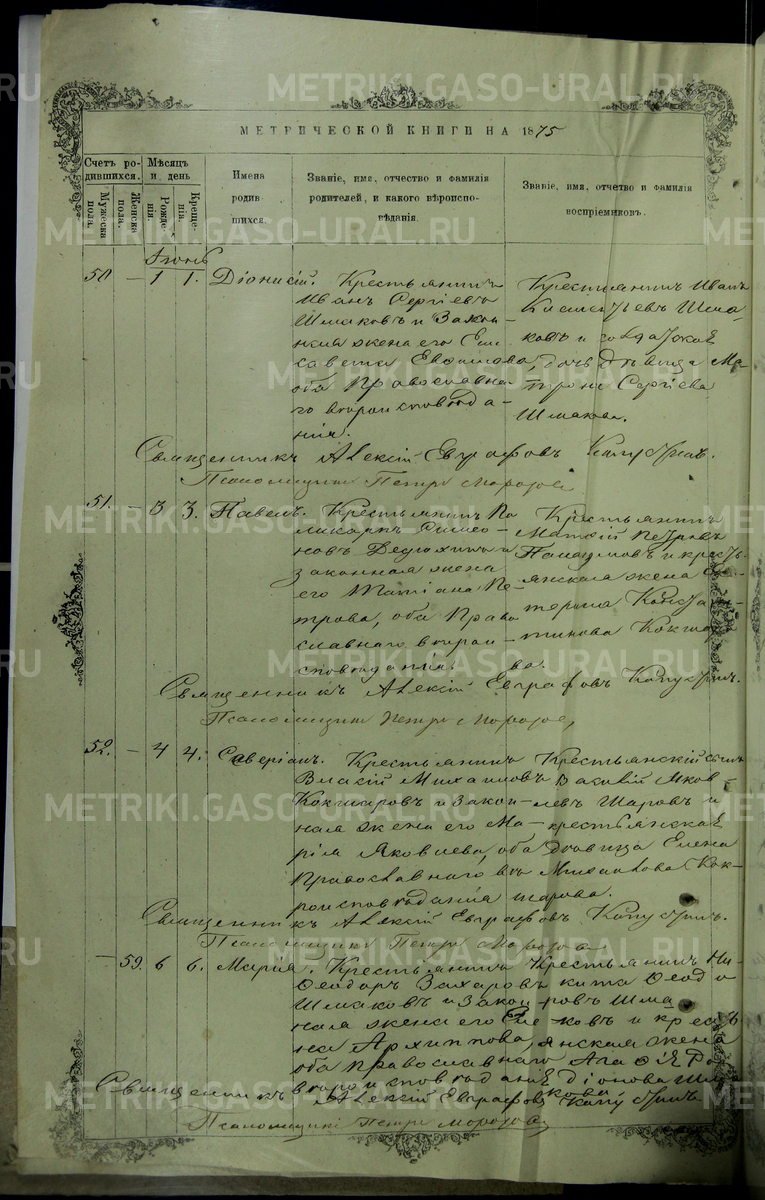 МЕТРИЧЕСКОЙ КНИГИ НА 1875
Счетъ ро-
дившихся.
Мужеска
пола.
Женска
пола.
Мѣсяцъ
и день
Рожде-
нія.
Креще-
нія.
Имена
родив-
шихся.
Званіе, имя, отчество и фамилія
родителей, и какого вѣроиспо-
вѣданія.
Званіе, имя, отчество и фамилія
воспріемниковъ.
Іюнь
50 — 1 1. Діонисій.
Крестьянинъ
Иванъ Сергіевъ
Шмаковъ и закон-
ная жена его Ели
савета Евфимова,
оба Православна-
го вѣроисповѣда-
нія.
Крестьянинъ Иванъ
Шма-
ковъ и солдатская
дочь дѣвица Ма-
трона Сергіева
Шмакова.
Священникъ Алексій Евграфовъ Капустинъ.
Псаломщикъ Петръ Морозовъ
51. — 3 3. Павелъ.
Крестьянинъ По
ликарпъ Симео-
новъ Дедюхинъ и
законная жена
его Татіана Пе-
трова, оба Право
славнаго вѣрои-
сповѣданія.
Крестьянинъ
Матѳій Петровъ
и кресть-
янская жена Ека-
терина Констан-
тинова Кокшаро
ва.
Священникъ Алексій Евграфовъ Капустинъ.
Псаломщикъ Петръ Морозовъ,
52. — 4 4. Северіанъ.
Крестьянинъ
Власій Михаиловъ
Кокшаровъ и закон-
ная жена его Ма-
рія Яковлева, оба
Православнаго вѣ
роисповѣданія
Крестьянскій сынъ
Василій Яков-
левъ Шаровъ и
крестьянская
дѣвица Елена
Михаилова Кок-
шарова.
Священникъ Алексій Евграфовъ Капустинъ.
Псаломщикъ Петръ Морозовъ
— 59. 6 6. Марія.
Крестьянинъ
Ѳеодоръ Захаровъ
Шмаковъ и закон-
ная жена его Еле
на Архиппова,
оба Православнаго
вѣроисповѣданія
Крестьянинъ Ни-
кита Ѳеодо
ровъ Шма
ковъ и кресть
янская жена
Агаѳія Ро-
діонова Шма
кова
Священникъ Алексій Евграфовъ Капустинъ
Псаломщикъ Петръ Морозовъ
METRIKI.GASO-URAL.RU